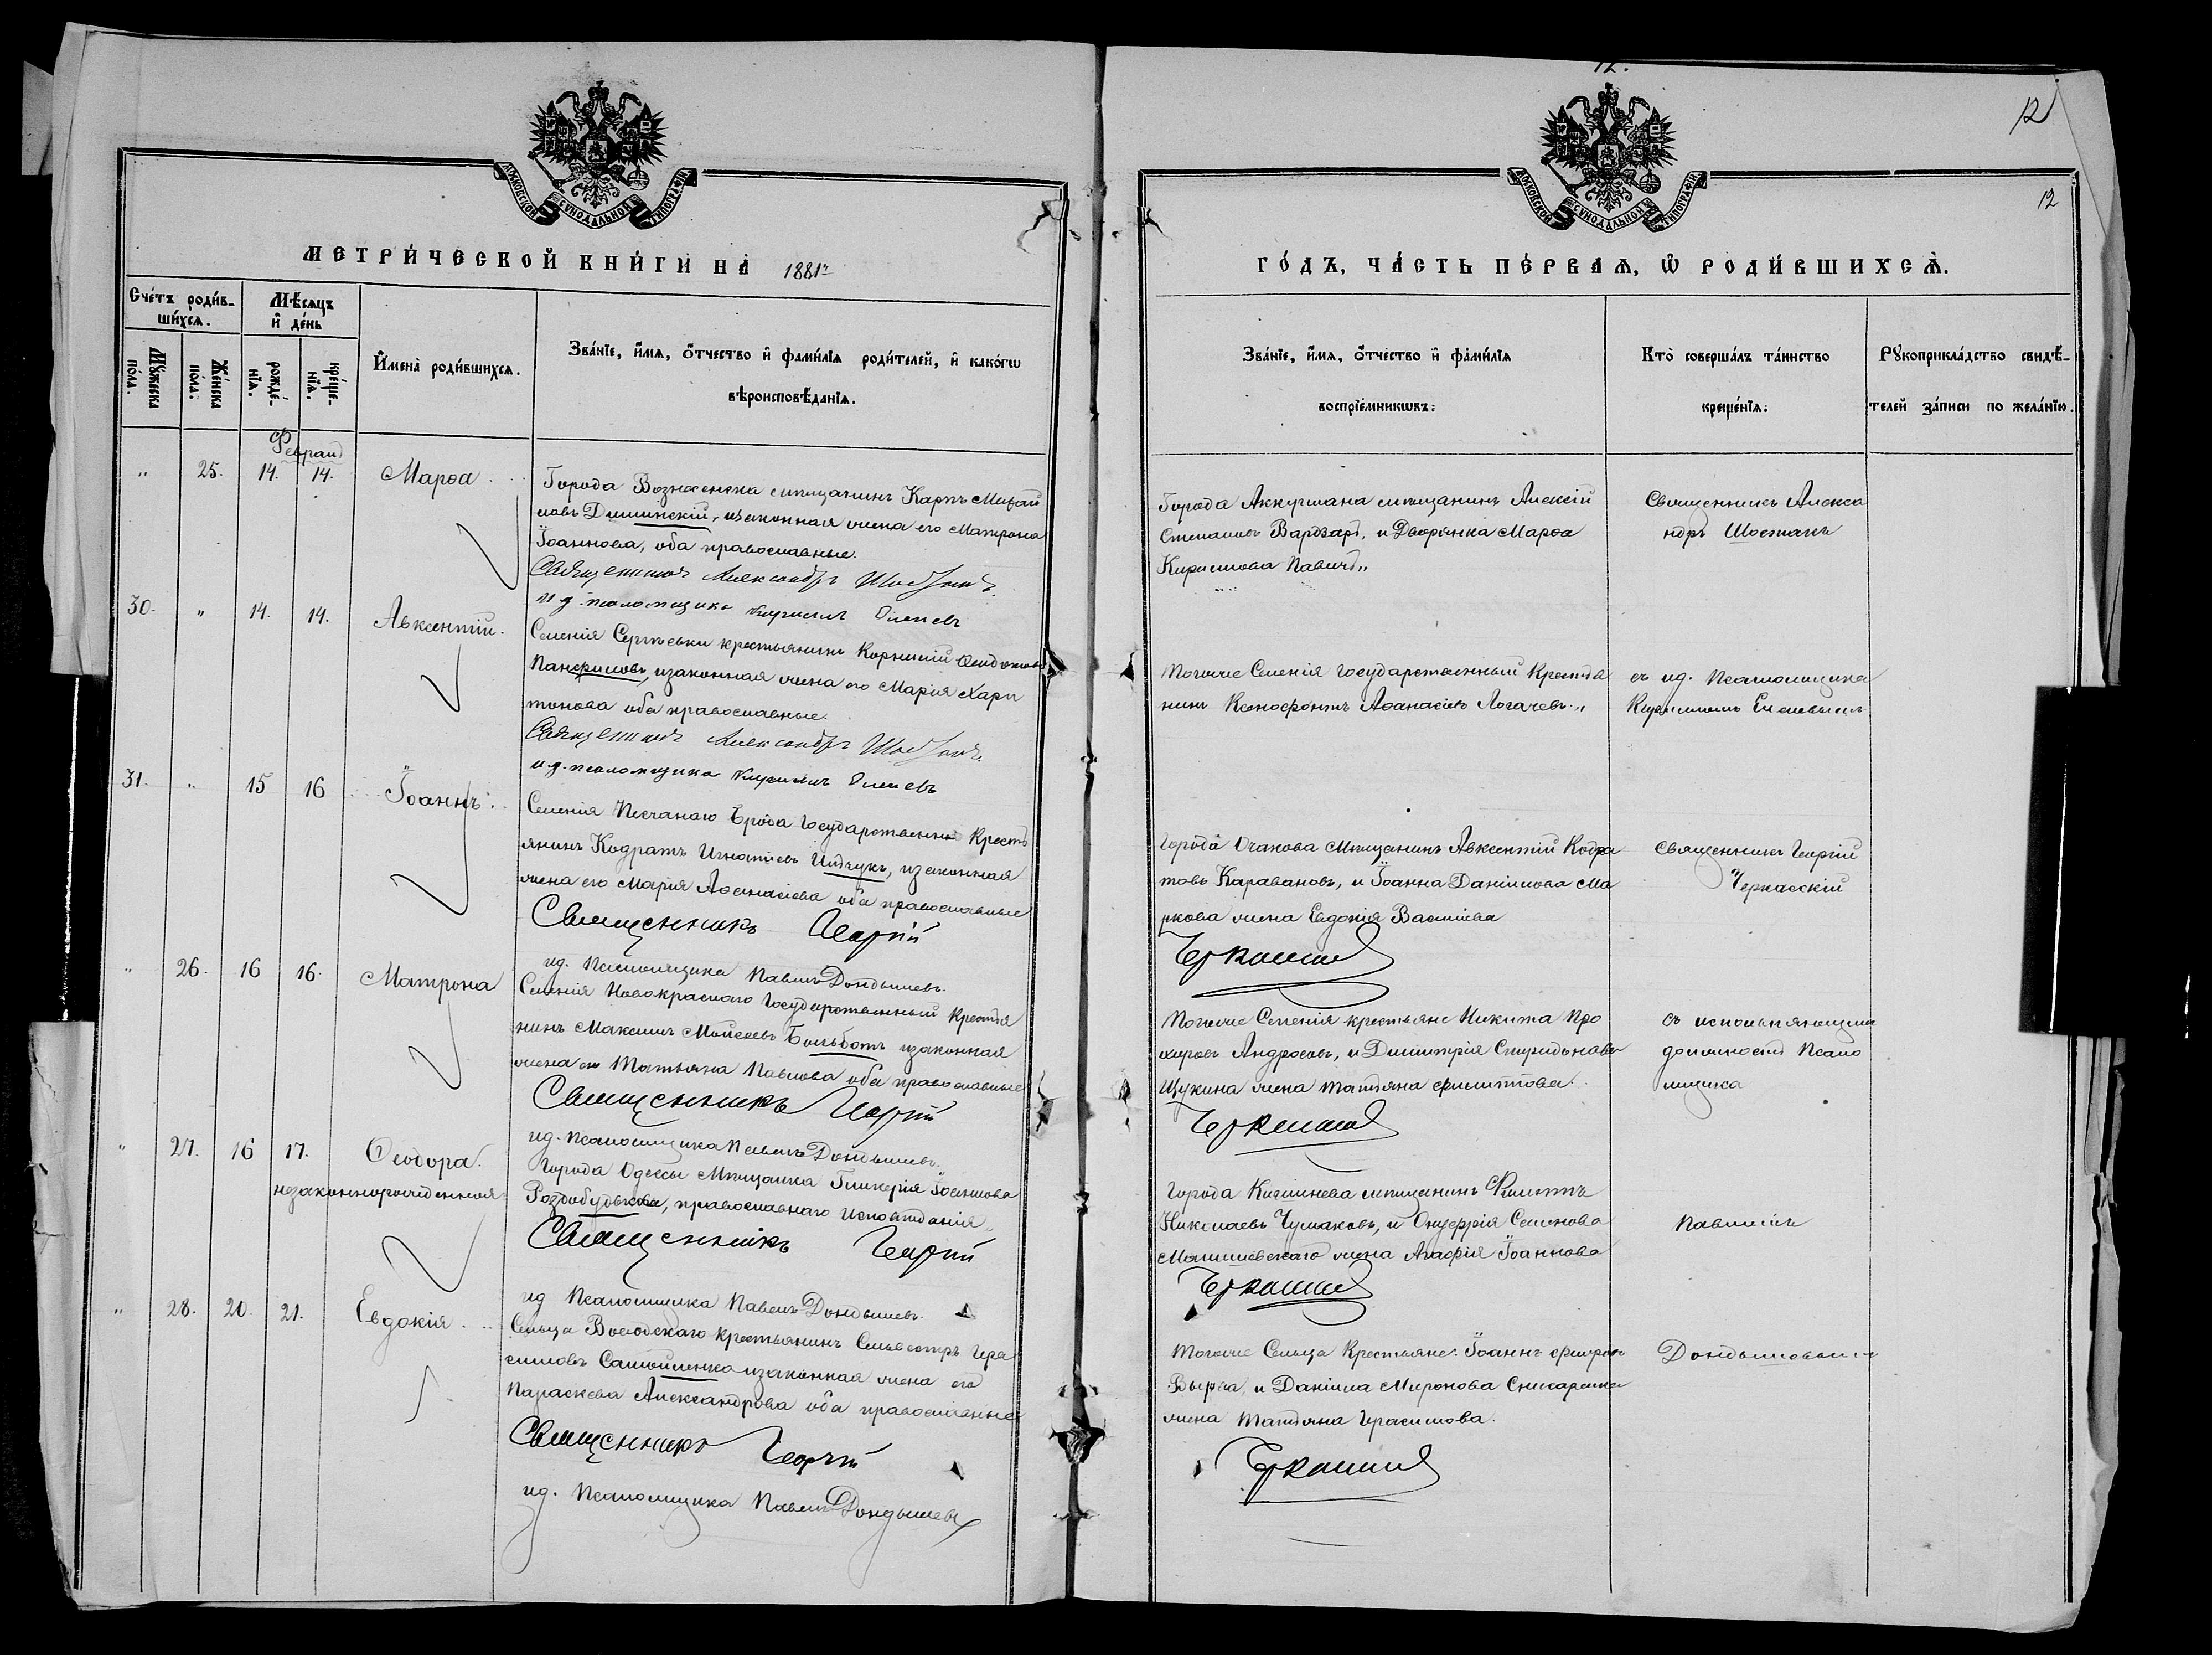 12.
12
12
МОСКОВСКОЙ СѴНОДАЛЬНОЙ ТИПОГРАФІИ
МОСКОВСКОЙ СѴНОДАЛЬНОЙ ТИПОГРАФІИ
МЕТРИ́ЧЕСКОЙ КНИ́ГИ НА̀ 1881 г.
ГО́ДЪ, ЧА́СТЬ ПЕ́РВАѦ, Ѡ҆ РОДИ́ВШИХСѦ.
Сче́тъ роди́в-
ши́хсѧ.
Мѣ́сѧцъ
и҆ де́нь
Мꙋ́жеска по́ла.
Же́нска по́ла.
рожде́-нїѧ.
креще́-нїѧ.
И҆мена̀ роди́вшихсѧ.
Зва́нїе, и҆́мѧ, ѻ҆́тчество и҆ фамѝлїѧ роди́телей, и҆ како́гѡ
вѣроисповѣ́данїѧ.
Зва́нїе, и҆́мѧ, ѻ҆́тчество и҆ фамѝлїѧ
воспрїе́мникѡвъ:
Кто̀ соверша́лъ та́инство
креще́нїѧ:
Рꙋкоприкла́дство свидѣ́-
телей за́писи по жела́нїю.
Феврал
" 25. 14. 14. Марѳа
Города Вознесенска мѣщанинъ Карпъ Михай
ловъ Дишинскій, изаконная жена его Матрона
Іоаннова, оба православные.
Священникъ Александръ Шостакъ
и д. псаломщика Кирилъ
Города Аккермана мѣщанинъ Алексій
Степановъ Варзарь, и Дворянка Марѳа
Кирилова Павичъ"
Священникъ Алекса
ндръ Шостакъ
30. " 14. 14. Авксентій.
Селенія Сергѣевки крестьянинъ Корнилій Ѳеодотовъ
Панфиловъ, изаконная жена его Марія Хари
тонова оба православные.
Священникъ Александръ Шостакъ
и д. псаломщика Кирилъ
Тогоже Селенія государственный Крестья
нинъ Ксенофонтъ Аѳанасіевъ Логачевъ"
съ ид. Псаломщика
31. " 15 16 Іоаннъ.
Селенія Песчанаго Брода Государственный Кресть
янинъ Кодратъ Игнатіевъ Индчукъ, изаконная
жена его Марія Аѳанасіева оба православные
Священникъ Георгій
ид. Псаломщика Павелъ Дондышевъ.
Города Очакова Мѣщанинъ Авксентій Кодра
товъ Каравановъ, и Іоанна Даніилова Ма
ркова жена Евдокія Василіева
Черкасскій
Священникъ Георгій
Черкасскій
" 26. 16 16. Матрона
Селенія Новокраснаго Государственный Крестья
нинъ Максимъ Мойсеевъ Больботъ изаконная
жена его Татьяна Павлова оба православные
Священникъ Георгій
ид. Псаломщика Павелъ Дондышевъ.
Тогоже Селенія крестьяне Никита Про
хоровъ Андросовъ, и Димитрія Спиридонова
Щукина жена Татіяна Филиппова.
Черкасскій
съ исполняющимъ
должность Псало
мщика
" 27. 16 17. Ѳеодора.
незаконнорожденная
Города Одессы Мѣщанка Гликерія Іоаннова
Роздобудькова, православнаго Исповѣданія,
Священникъ Георгій
ид Псаломщика Павелъ Дондышевъ.
Города Кишинева мѣщанинъ Филиппъ
Николаевъ Чумаковъ, и Онуфрія Семенова
Малишевскаго жена Агафія Іоаннова
Черкасскій
Павломъ
" 28. 20. 21. Евдокія.
Сельца Володскаго крестьянинъ Сильвестръ Гера
симовъ Самойленко изаконная жена его
Параскева Александрова оба православные
Священникъ Георгій
ид. Псаломщика Павелъ Дондышевъ
Тогоже Сельца Крестьяне: Іоаннъ
Вырва, и Даніила Миронова Снисаренка
жена Татіяна Герасимова.
Черкасскій
Дондышевымъ